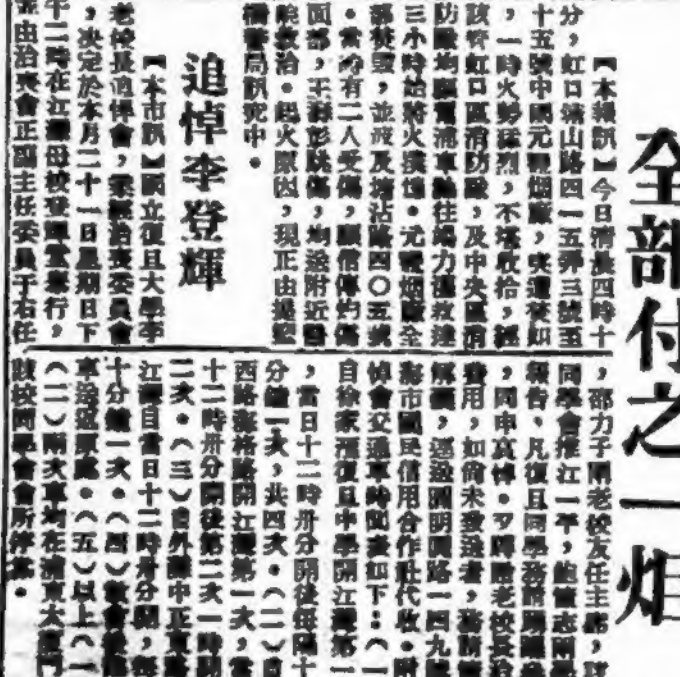 全部付之一炬
【本報訊】今日清晨四時十
分,虹口山路四一五弄三號至
十五號中國元烟廠,突遭焚如
,一時火勢猛烈,不堪收拾,經
該管虹口區消防隊,及中央區消
防隊均驅浦車往竭力灌救達
三小時始將火撲熄。元烟廠全
部焚毀,並波及塘沽路四〇五號
。當時有二人受傷,顧信傳灼傷
面部,王彭跳傷,均送附近醫
院救治。起火原因,現正由提籃
橋警局訊究中。
追悼李登輝
【本市訊】國立復旦大學李
老校長追悼會,業經治喪委員會
,決定於本月二十一日星期日下
午二時在江灣母校登輝堂舉行,
並由治喪會正副主任委員于右任
,邵力子兩老校友任主席,
同學會推江一平,兩
報告、凡復旦同學務
,同申哀悼。又贈老校長
費用,如尚未送者,務請
逕送圓明園路一四九號
海市國民信用合作社代收。附
悼會交通車時間表如下:(一
自徐家滙復旦中學開江灣第一
,當日十二時卅分開後每隔十
分鐘一次,共四次。(二)自
西路格路開江灣第一次,當
十二時卅分開後第二次一時開
二次。(三)自外灘中正東路
江灣自當日十二時卅分開,每
十分鐘一次。(四)散會後
車送返原處。(五)以上(一
(二)兩次車均在東大門
該校同學會會所停。